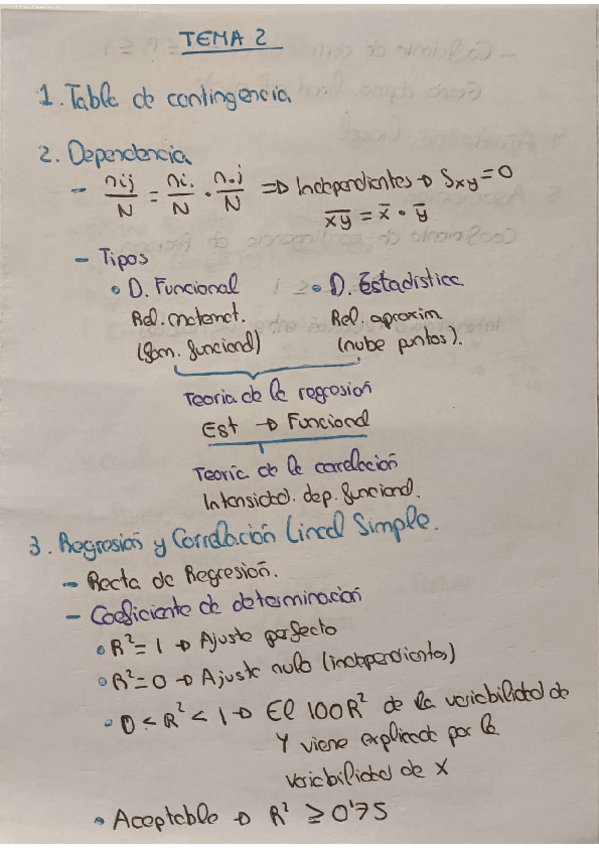 TEMA 2
1. Tabla de contingencia
2. Dependencia
- nij/N = ni./N · n.j/N => Independientes → Sxy = 0
x̅y̅ = x̅ · y̅
- Tipos
• D. Funcional • D. Estadística
Rel. matemat. Rel. aproxim
(forn. funcional) (nube puntos).
Teoría de la regresión
Est → Funcional
Teoría de la correlación
Intensidad. dep. funcional.
3. Regresión y Correlación Lineal Simple.
- Recta de Regresión.
- Coeficiente de determinación
• R² = 1 → Ajuste perfecto
• R² = 0 → Ajuste nulo (independientes)
• 0 < R² < 1 → El 100R² de la variabilidad de
Y viene explicada por la
variabilidad de X
• Aceptable → R² ≥ 0'75